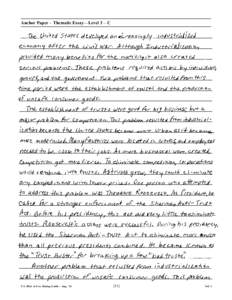 Anchor Paper – Thematic Essay—Level 3 – C
The United States developed an increasingly industrialized
economy after the civil war. Although Industrialization
provided many benefits for the nation, it also created
serious problems. These problems required actions by individuals,
and the government. Two problems that resulted from this
time period were the establishment of trusts and the production
of unsafe consumer goods.
The establishment of trusts were good for big business but a
major problem for competition. This problem resulted from
because the United States became more urban as it became
more industrialized. Many factories were located in cities, and employees
needed to be close to their jobs. As more businesses were created
competition got more fierce. To eliminate competition, corporations
would combine into trusts. As trusts grew, they could eliminate
any
to address this problem was Theodore Roosevelt. As President, he
called for a stronger enforcement of the Sherman Anti-Trust
Act. Before his presidency, this act did very little to eliminate
trusts. Roosevelt's were successful. During his presidency,
he used the Sherman Anti-Trust Act to eliminate more trusts
than all previous presidents combined. He became known as
the "Trust Buster" for breaking up a few "bad trusts".
Another problem that resulted from industrialization
was the production of unsafe consumer goods. This problem